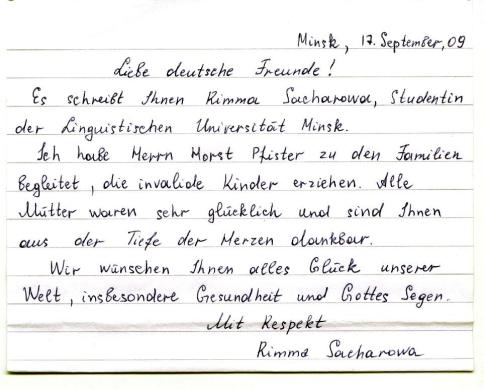 Minsk, 17. September, 09
Liebe deutsche Freunde!
Es schreibt Ihnen Rimma Sacharowa, Studentin
der Linguistischen Universität Minsk.
Ich habe Herrn Horst Pfister zu den Familien
begleitet, die invalide Kinder erziehen. Alle
Mütter waren sehr glücklich und sind Ihnen
aus der Tiefe der Herzen dankbar.
Wir wünschen Ihnen alles Glück unserer
Welt, insbesondere Gesundheit und Gottes Segen.
Mit Respekt
Rimma Sacharowa